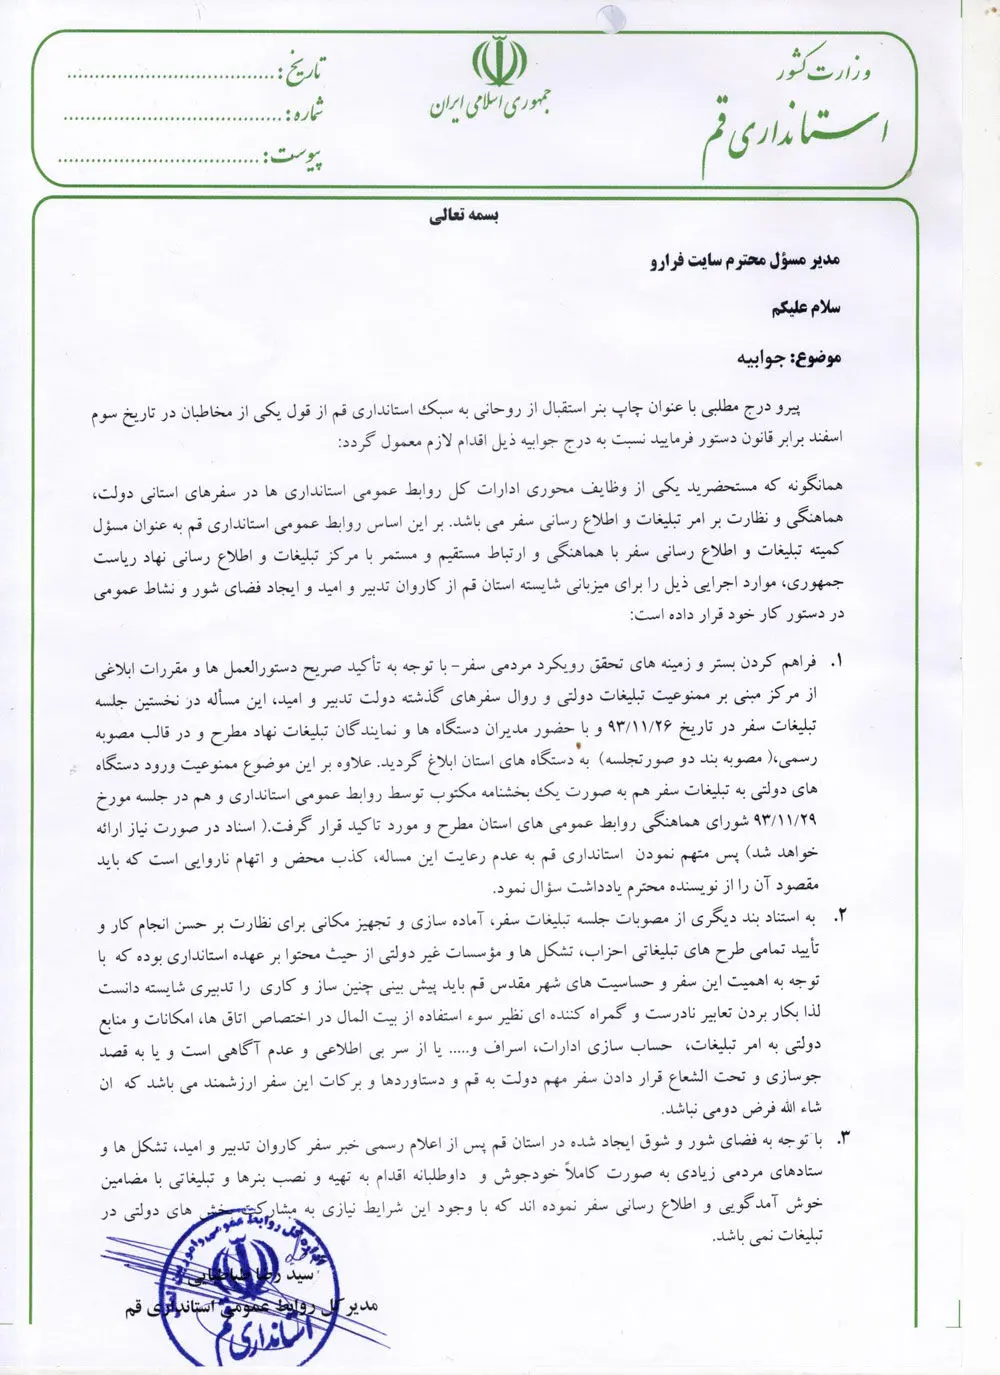 وزارت کشور
استانداری قم
جمهوری اسلامی ایران
تاریخ: ......................................
شماره: ......................................
پیوست: ......................................
بسمه تعالی
مدیر مسؤل محترم سایت فرارو
سلام علیکم
موضوع: جوابیه
پیرو درج مطلبی با عنوان چاپ بنر استقبال از روحانی به سبک استانداری قم از قول یکی از مخاطبان در تاریخ سوم
اسفند برابر قانون دستور فرمایید نسبت به درج جوابیه ذیل اقدام لازم معمول گردد:
همانگونه که مستحضرید یکی از وظایف محوری ادارات کل روابط عمومی استانداری ها در سفرهای استانی دولت،
هماهنگی و نظارت بر امر تبلیغات و اطلاع رسانی سفر می باشد. بر این اساس روابط عمومی استانداری قم به عنوان مسؤل
کمیته تبلیغات و اطلاع رسانی سفر با هماهنگی و ارتباط مستقیم و مستمر با مرکز تبلیغات و اطلاع رسانی نهاد ریاست
جمهوری، موارد اجرایی ذیل را برای میزبانی شایسته استان قم از کاروان تدبیر و امید و ایجاد فضای شور و نشاط عمومی
در دستور کار خود قرار داده است:
۱. فراهم کردن بستر و زمینه های تحقق رویکرد مردمی سفر- با توجه به تأکید صریح دستورالعمل ها و مقررات ابلاغی
از مرکز مبنی بر ممنوعیت تبلیغات دولتی و روال سفرهای گذشته دولت تدبیر و امید، این مسأله در نخستین جلسه
تبلیغات سفر در تاریخ ۹۳/۱۱/۲۶ و با حضور مدیران دستگاه ها و نمایندگان تبلیغات نهاد مطرح و در قالب مصوبه
رسمی،( مصوبه بند دو صورتجلسه) به دستگاه های استان ابلاغ گردید. علاوه بر این موضوع ممنوعیت ورود دستگاه
های دولتی به تبلیغات سفر هم به صورت یک بخشنامه مکتوب توسط روابط عمومی استانداری و هم در جلسه مورخ
۹۳/۱۱/۲۹ شورای هماهنگی روابط عمومی های استان مطرح و مورد تاکید قرار گرفت.( اسناد در صورت نیاز ارائه
خواهد شد) پس متهم نمودن استانداری قم به عدم رعایت این مساله، کذب محض و اتهام ناروایی است که باید
مقصود آن را از نویسنده محترم یادداشت سؤال نمود.
۲. به استناد بند دیگری از مصوبات جلسه تبلیغات سفر، آماده سازی و تجهیز مکانی برای نظارت بر حسن انجام کار و
تأیید تمامی طرح های تبلیغاتی احزاب، تشکل ها و مؤسسات غیر دولتی از حیث محتوا بر عهده استانداری بوده که با
توجه به اهمیت این سفر و حساسیت های شهر مقدس قم باید پیش بینی چنین ساز و کاری را تدبیری شایسته دانست
لذا بکار بردن تعابیر نادرست و گمراه کننده ای نظیر سوء استفاده از بیت المال در اختصاص اتاق ها، امکانات و منابع
دولتی به امر تبلیغات، حساب سازی ادارات، اسراف و..... یا از سر بی اطلاعی و عدم آگاهی است و یا به قصد
جوسازی و تحت الشعاع قرار دادن سفر مهم دولت به قم و دستاوردها و برکات این سفر ارزشمند می باشد که ان
شاء الله فرض دومی نباشد.
۳. با توجه به فضای شور و شوق ایجاد شده در استان قم پس از اعلام رسمی خبر سفر کاروان تدبیر و امید، تشکل ها و
ستادهای مردمی زیادی به صورت کاملاً خودجوش و داوطلبانه اقدام به تهیه و نصب بنرها و تبلیغاتی با مضامین
خوش آمدگویی و اطلاع رسانی سفر نموده اند که با وجود این شرایط نیازی به مشارکت بخش های دولتی در
تبلیغات نمی باشد.
سید رضا طباطبایی
مدیر کل روابط عمومی استانداری قم
استانداری قم